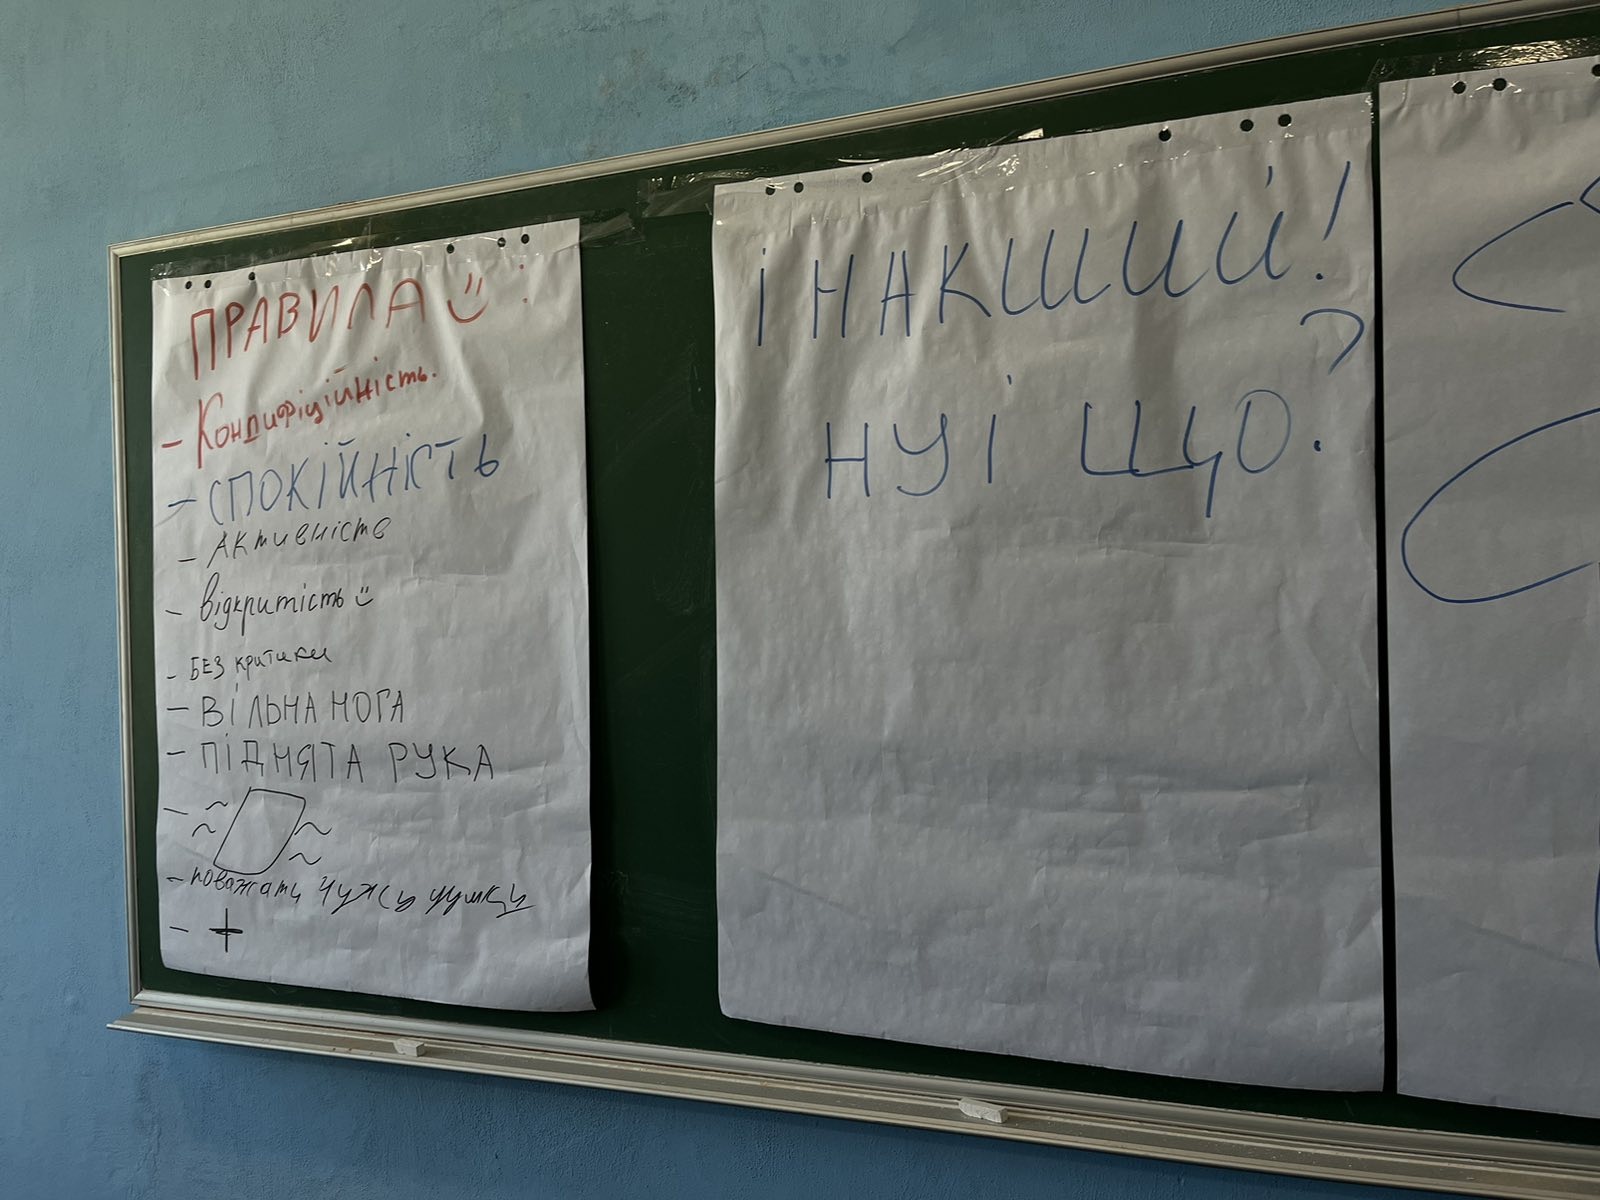 ПРАВИЛА :
- Кондифіційність.
- СПОКІЙНІСТЬ
- Активність
- відкритість
- БЕЗ критики
- ВІЛЬНА НОГА
- ПІДНЯТА РУКА
- поважати чужу думку
- +
ІНАКШИЙ!
НУ І ЩО?